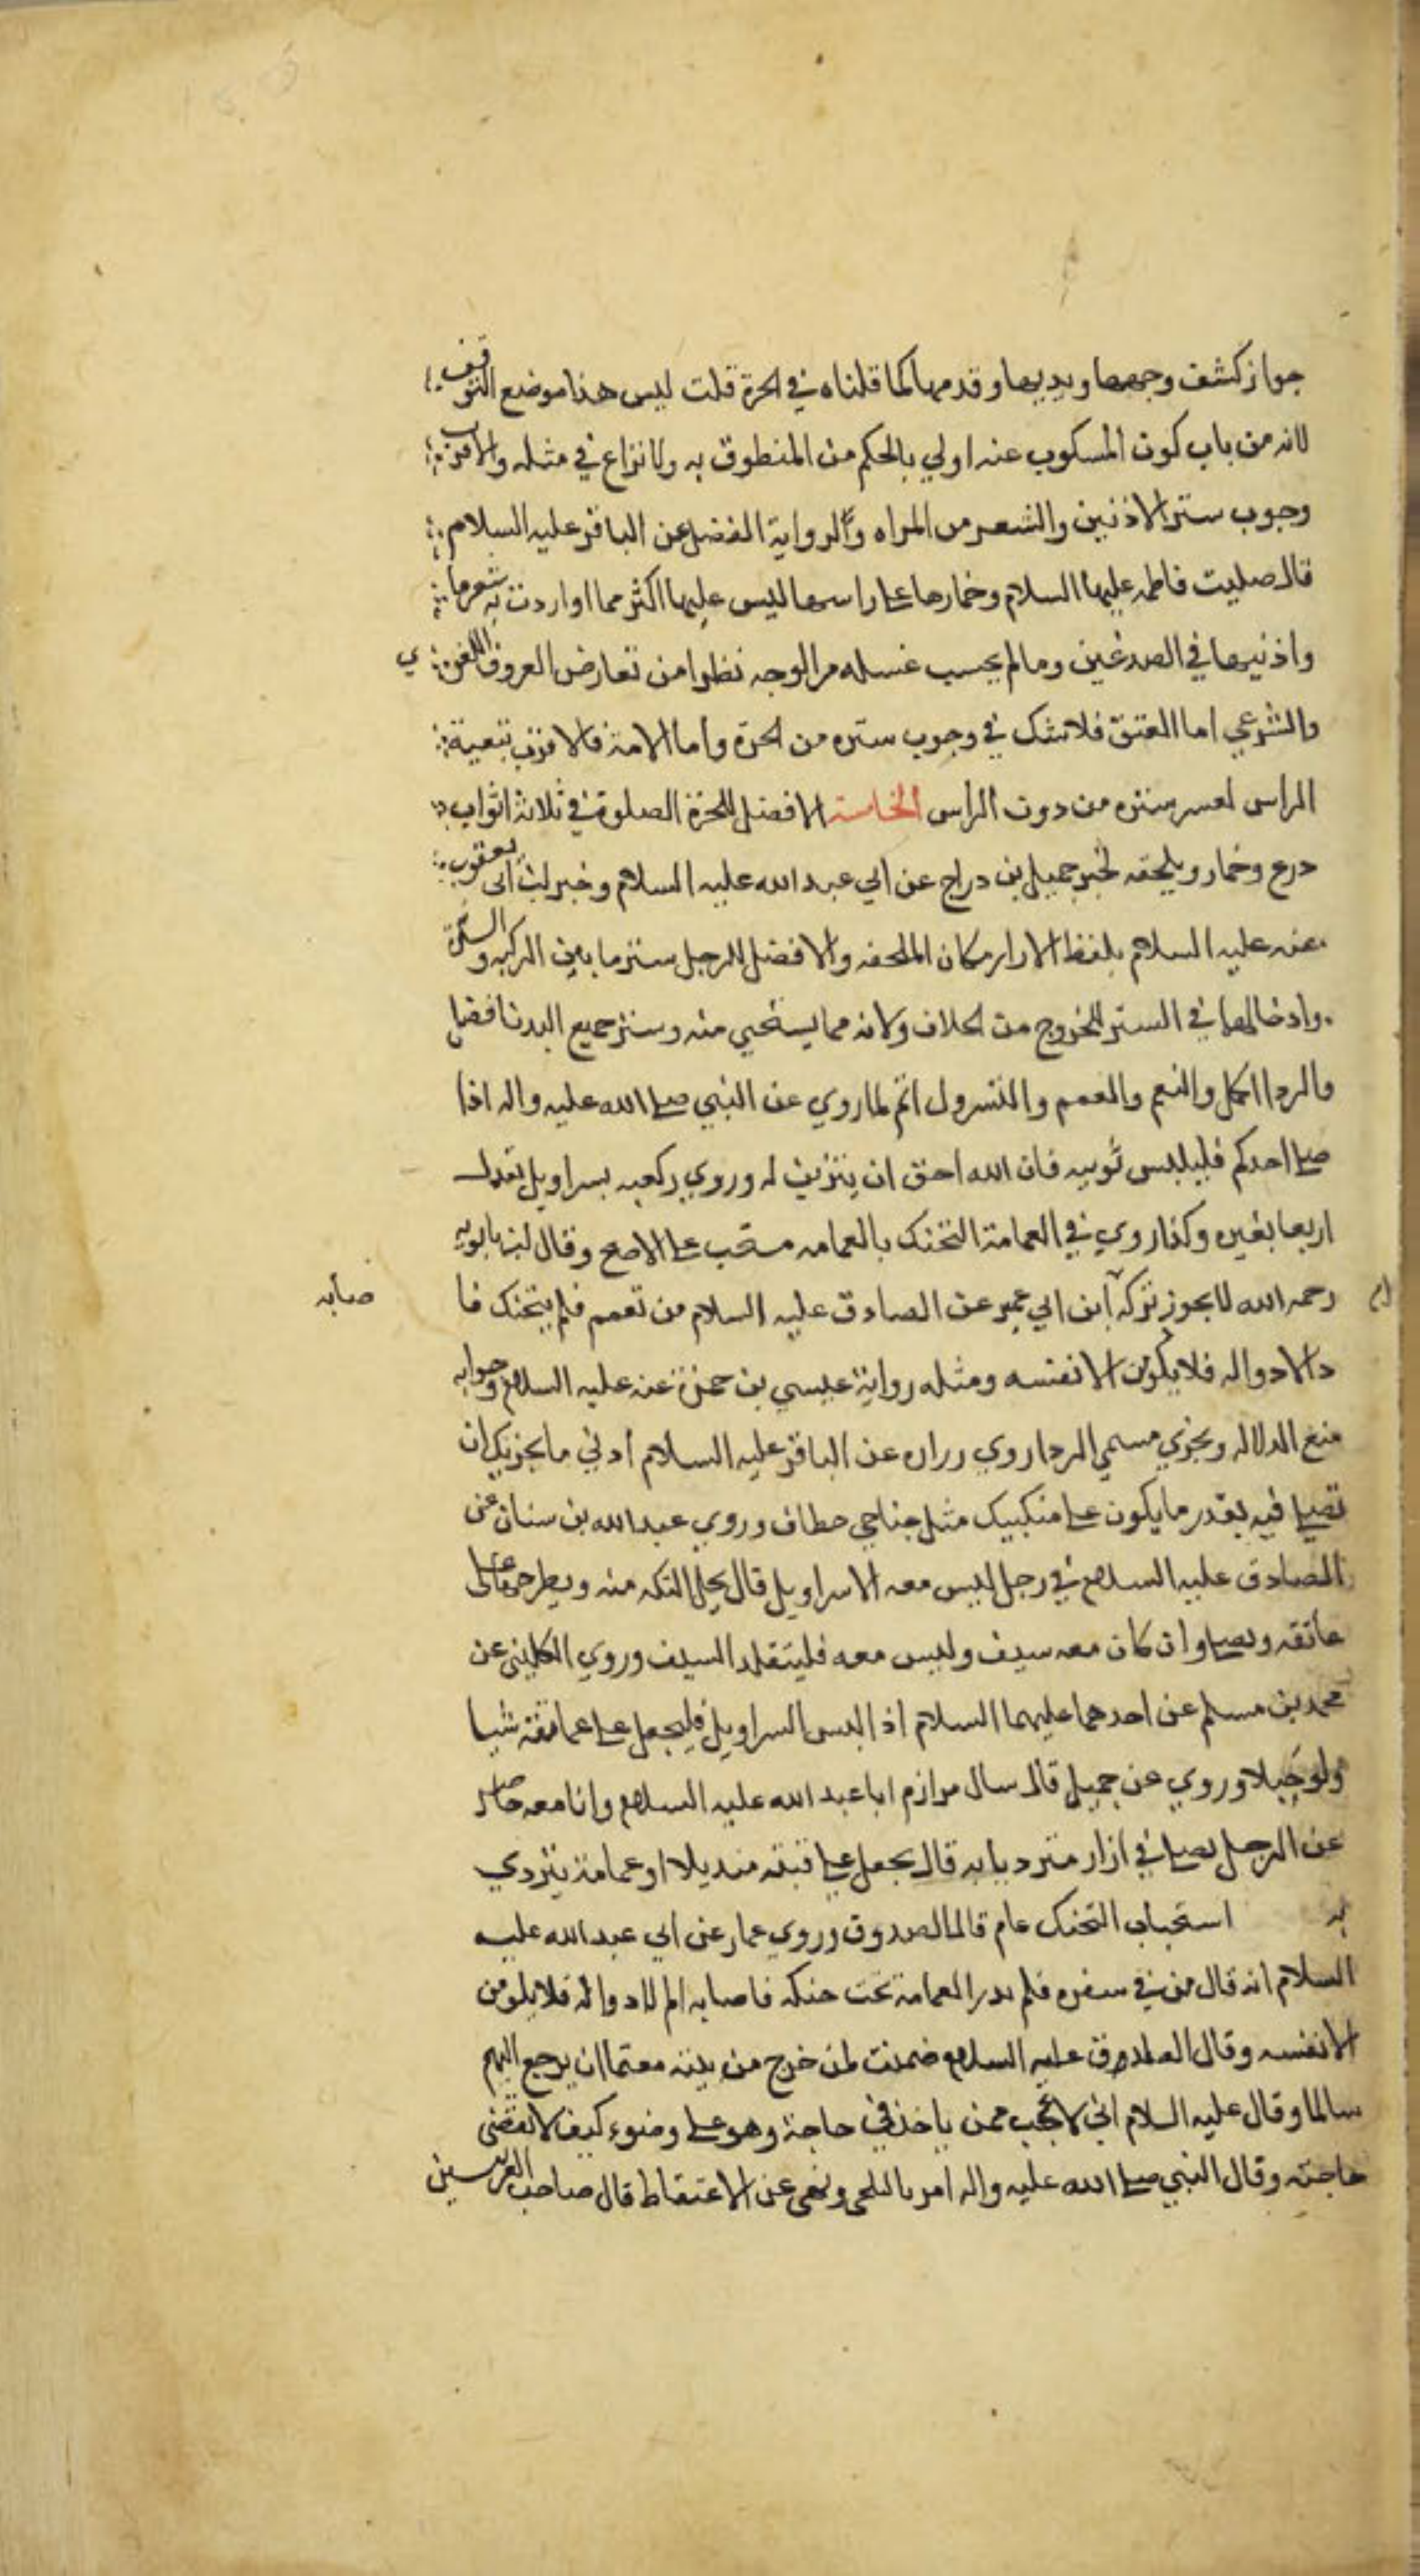 جواز كشف وجهها ويديها وقدميها كما قلناه في الحرة قلت ليس هذا موضع التوقف
لانه من باب كون المسكوب عنه اولي بالحكم من المنطوق به ولا نزاع في مثله والاقرب
وجوب ستر الاذنين والشعر من المراه الرواية الفضيل عن الباقر عليه السلام
قال صليت فاطمه عليها السلام وخمارها علي راسها ليس عليها اكثر مما اواردت به شعرها
واذنيها في الصدغين وما لم يجب غسله من الوجه نظرا من تعارض العروف اللغوي
والشرعي اما العتق فلا شك في وجوب ستره من الحرة واما الامة فالاقرب تبعية
الراس لعسر ستره من دون الراس الخامسة الافضل للحرة الصلوة في ثلاثة اثواب
درع وخمار ويلحقه لخبر جميل بن دراج عن ابي عبد الله عليه السلام وخبر ابن ابي يعقوب
عنه عليه السلام بلفظ الازار مكان الملحفه والافضل للرجل ستر ما بين الركبه والسرة
وادخالهما في الستر للخروج من الخلاف ولانه مما يستحيي منه وستر جميع البدن افضل
والردا اكمل والنعم والتعمم والتسرول اتم لما روي عن النبي صلي الله عليه واله اذا
صلي احدكم فليلبس ثوبيه فان الله احق ان يتزين له وروي ركعه بسراويل تعدل
اربعا بغيره وكذا روي في العمامة التحنك بالعمامه مستحب علي الاصح وقال ابن بابويه
رحمه الله لا يجوز تركه ابن ابي عمير عن الصادق عليه السلام من تعمم فلم يتحنك فا صابه
دا لا دوا له فلا يلومن الا نفسه ومثله رواية عيسي بن حمزة عنه عليه السلام وجوابه
منع الدلاله ويجزي مسمي الردا روي زراره عن الباقر عليه السلام ادني ما يجزيك ان
تصلي فيه بقدر ما يكون علي منكبيك مثل جناحي خطاف وروي عبد الله بن سنان عن
الصادق عليه السلام في رجل ليس معه الا سراويل قال يحل التكه منه ويطرحها علي
عاتقه ويصلي وان كان معه سيف وليس معه فليتقلد السيف وروي الكليني عن
محمد بن مسلم عن احدهما عليهما السلام اذا لبس السراويل فليجعل علي عاتقه شيا
ولو حبلا وروي عن جميل قال سال مرازم ابا عبد الله عليه السلام وانا معه حاضر
عن الرجل يصلي في ازار متردیا به قال يجعل علي منديلا او عمامة يتردي
به استحباب التحنك عام قاله الصدوق وروي عمار عن ابي عبد الله عليه
السلام انه قال من في سفره فلم يدر العمامة تحت حنكه فاصابه الم لا دوا له فلا يلومن
الا نفسه وقال الصادق عليه السلام ضمنت لمن خرج من بيته معتما ان يرجع اليهم
سالما وقال عليه السلام اني لاعجب ممن ياخذ في حاجة وهو علي وضوء كيف لا تقضي
حاجته وقال النبي صلي الله عليه واله امر بالتلحي ونهي عن الاعتقاط قال صاحب الغريبين